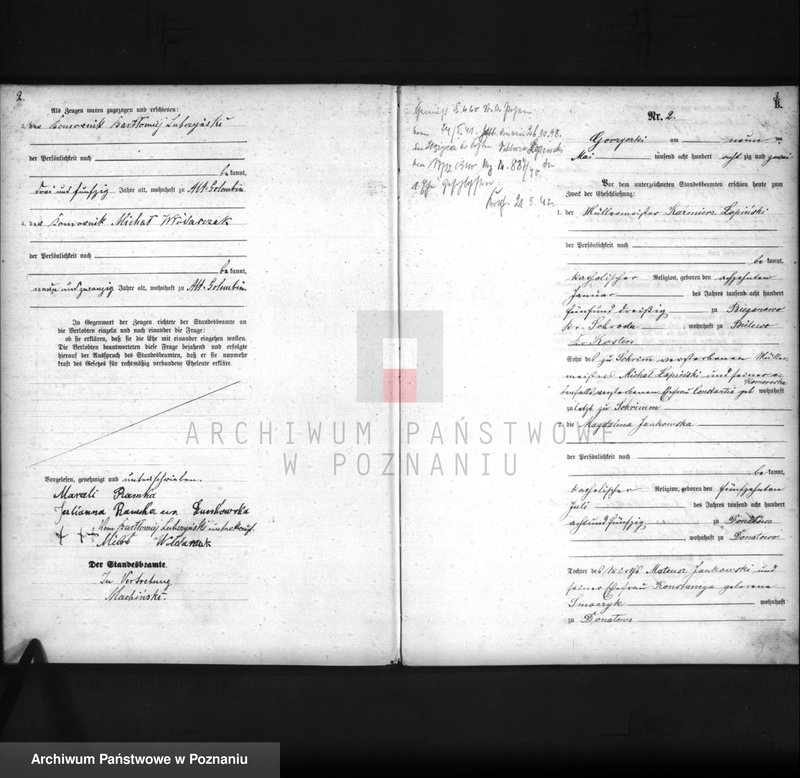 2.
Als Zeugen waren zugezogen und erschienen:
3. der Komornik Bartłomiej Lubczyński
der Persönlichkeit nach
be kannt,
drei und fünfzig Jahre alt, wohnhaft zu Alt-Golembin
4. der Komornik Michał Włodarczak
der Persönlichkeit nach
be kannt,
neun und zwanzig Jahre alt, wohnhaft zu Alt-Golembin
In Gegenwart der Zeugen richtete der Standesbeamte an
die Verlobten einzeln und nach einander die Frage:
ob sie erklären, daß sie die Ehe mit einander eingehen wollen.
Die Verlobten beantworteten diese Frage bejahend und erfolgte
hierauf der Ausspruch des Standesbeamten, daß er sie nunmehr
kraft des Gesetzes für rechtmäßig verbundene Eheleute erkläre.
Vorgelesen, genehmigt und unterschrieben.
Marceli Ramka
Julianna Ramka
+++ Vom Bartłomiej Lubczyński
Włodarczak
Der Standesbeamte.
In Vertretung
Machiński.
B.
Nr. 2.
Gorzyczki am neun
Mai tausend acht hundert acht zig und zwei
Vor dem unterzeichneten Standesbeamten erschienen heute zum
Zweck der Eheschließung:
1. der Müllermeister Kazimierz Łopiński
der Persönlichkeit nach
be kannt,
katholischer Religion, geboren den achzehnten
Januar des Jahres tausend acht hundert
fünf und dreißig zu
Kr. Schroda, wohnhaft zu
Kr. Kosten
Sohn des zu Schrim verstorbenen Müller
meisters Michał Łopiński und seiner
ebenfalls verstorbenen Ehefrau Constantia geb Komorowska wohnhaft
zuletzt zu Schrimm
2. die Magdalena Jankowska
der Persönlichkeit nach
be kannt,
katholischer Religion, geboren den fünfzehnten
Juli des Jahres tausend acht hundert
acht und fünfzig zu Donatowo
wohnhaft zu Donatowo
Tochter des Wirths Mateusz Jankowski und
seiner Ehefrau Konstancya geborene
Smoczyk wohnhaft
zu Donatowo
ARCHIWUM PAŃSTWOWE
W POZNANIU
Archiwum Państwowe w Poznaniu